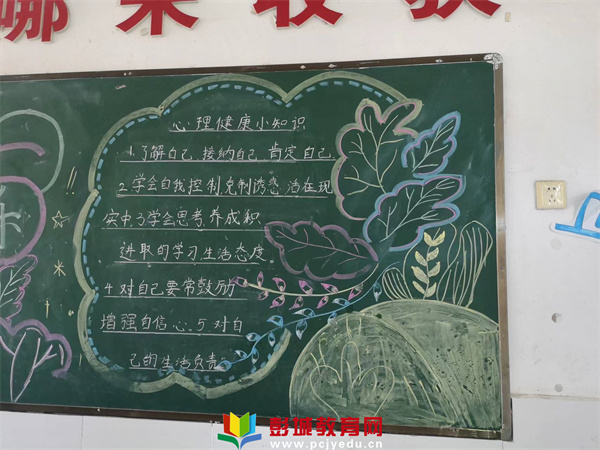 心理健康小知识
1.了解自己 接纳自己 肯定自己
2.学会自我控制克制诱惑 活在现
实中.3学会思考,养成积
进取的学习生活态度
4 对自己要常鼓励
增强自信心.5 对自
己的生活负责
彭城教育网
www.pcjyedu.cn